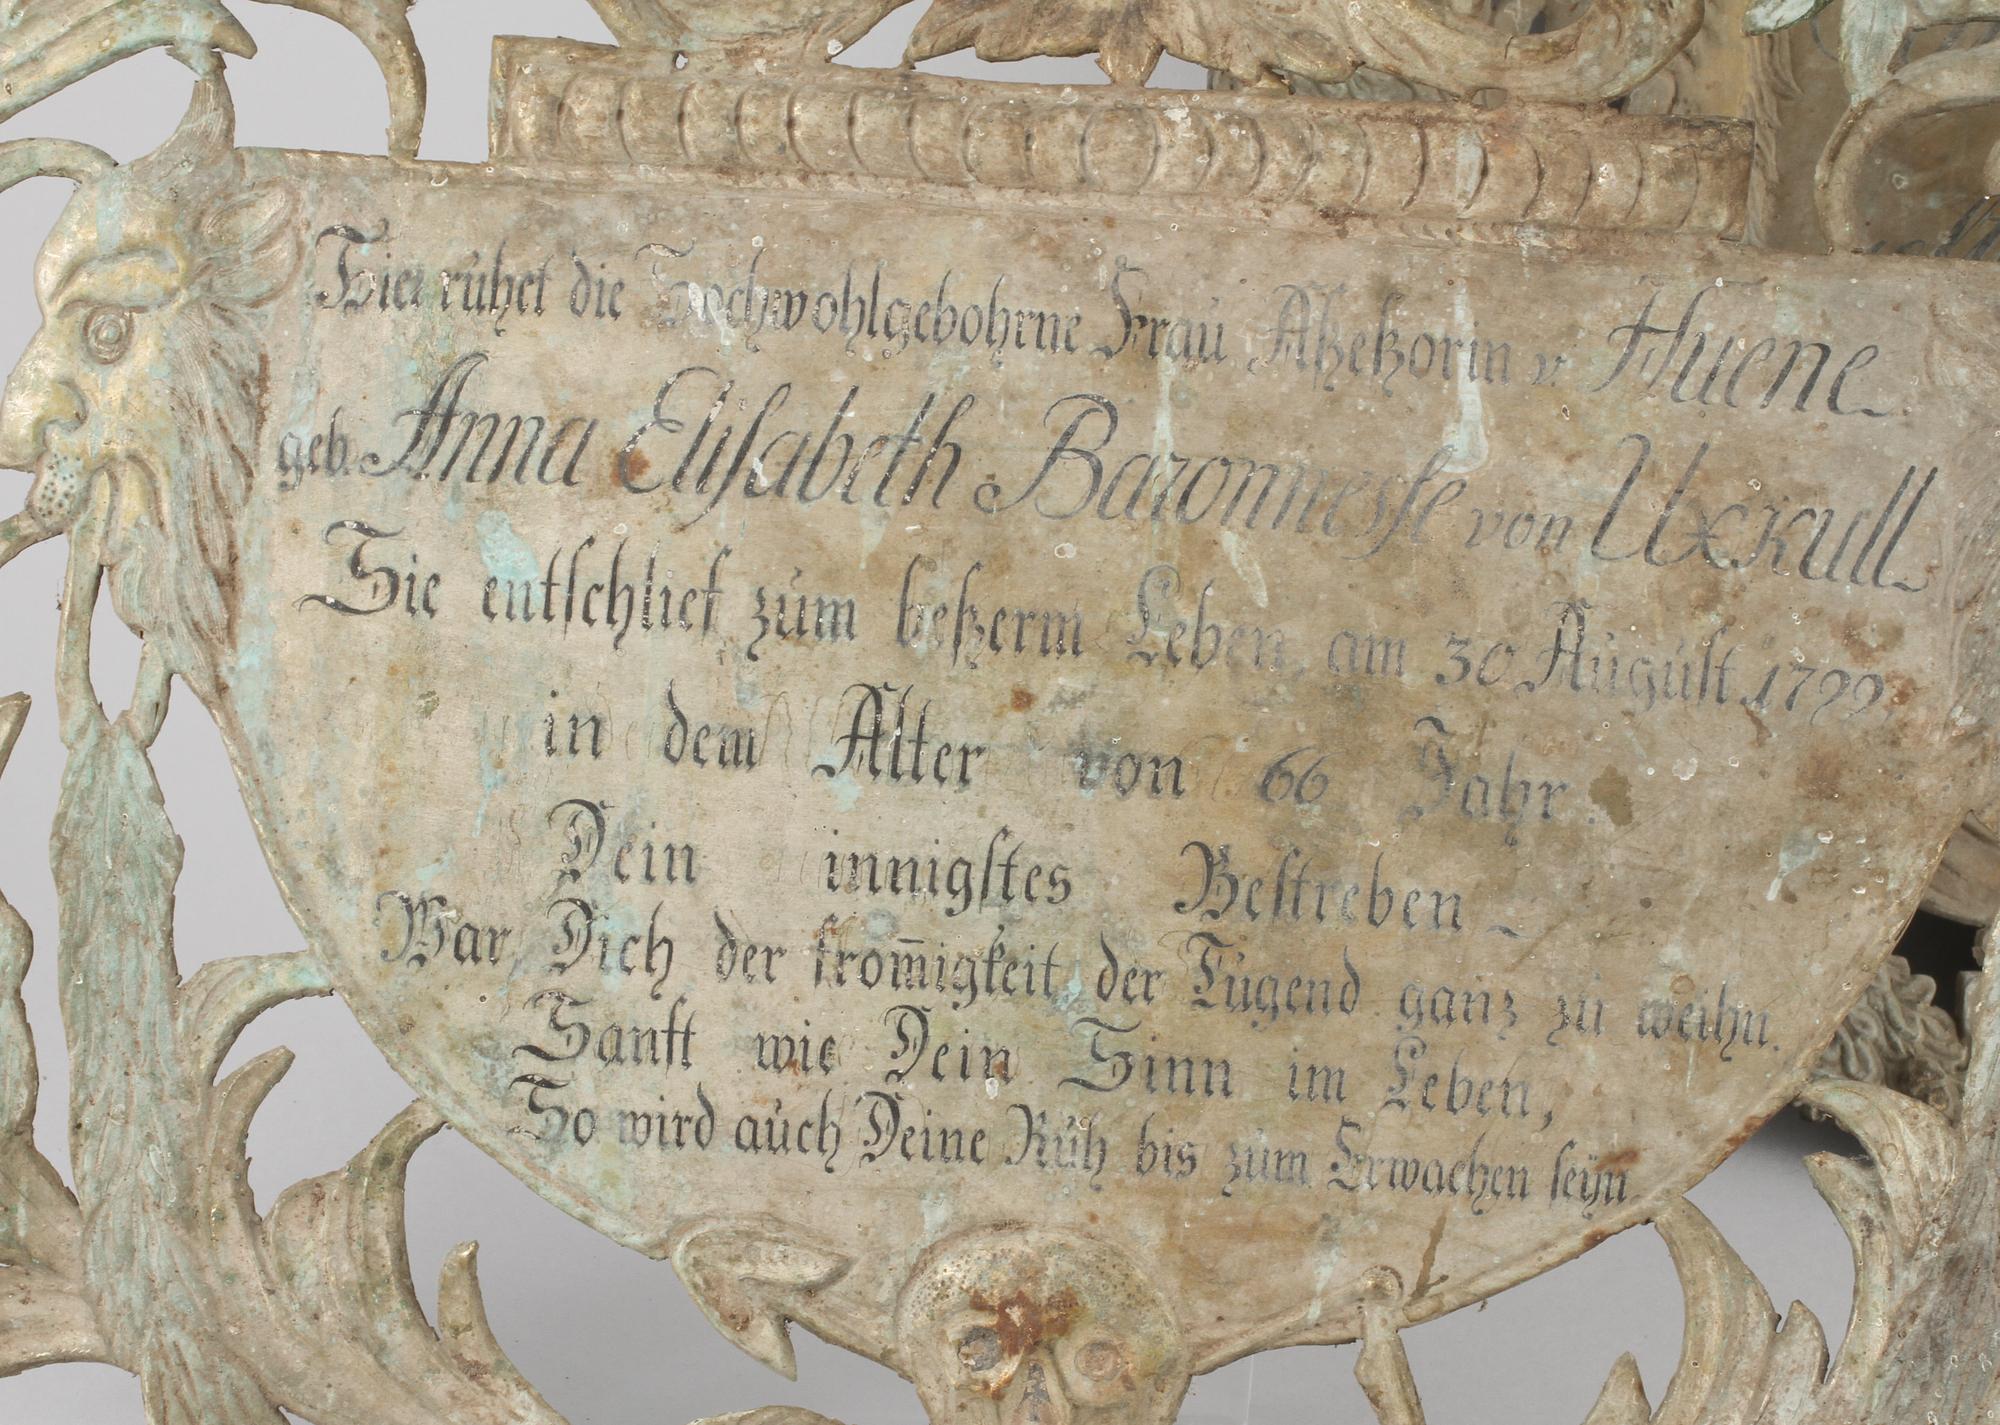 Hier ruhet die Hochwohlgebohrne Frau Aßeßorin v Huene
geb. Anna Eliſabeth Baronnesſe von Uxkull
Sie entſchlief zum beßerm Leben, am 30 Auguſt 1799,
in dem Alter von 66 Jahr.
Dein innigſtes Beſtreben
War, Dich der from̄igkeit, der Tugend ganz zu weihn.
Sanft wie Dein Sinn im Leben,
So wird auch Deine Ruh bis zum Erwachen ſeyn